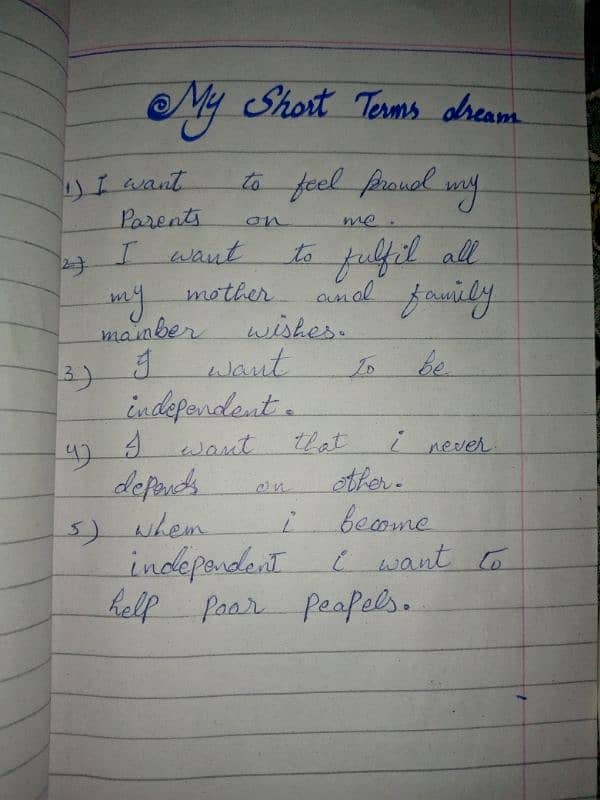 My Short Terms dream
1) I want to feel proud my
Parents on me.
2) I want to fulfil all
my mother and family
mamber wishes.
3) I want To be
independent.
4) I want that i never
depends on other.
5) whem i become
independent i want to
help poar peapels.